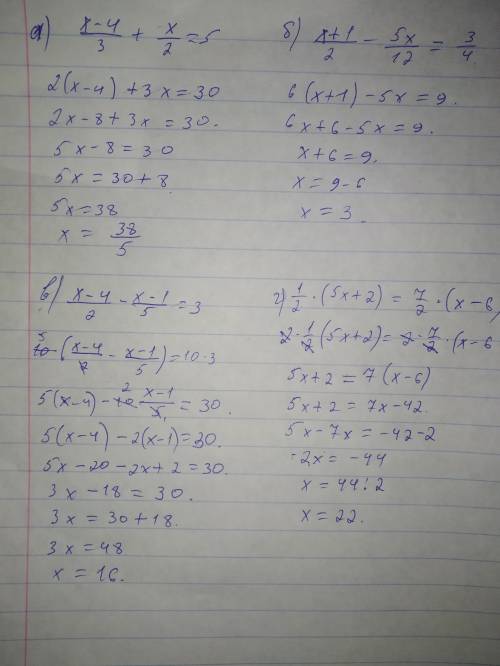 а) (x-4)/3 + x/2 = 5
2(x-4) + 3x = 30
2x-8+3x = 30.
5x-8 = 30
5x = 30+8
5x = 38
x = 38/5
б) (x+1)/2 - 5x/12 = 3/4
6(x+1) - 5x = 9.
6x+6-5x = 9.
x+6 = 9.
x = 9-6
x = 3.
в) (x-4)/2 - (x-1)/5 = 3
5 10 ((x-4)/2 - (x-1)/5) = 10·3
5(x-4) - 10 2 · (x-1)/5 1 = 30.
5(x-4) - 2(x-1) = 30.
5x-20-2x+2 = 30.
3x-18 = 30.
3x = 30+18.
3x = 48
x = 16.
г) 1/2 · (5x+2) = 7/2 · (x-6)
2 · 1/2 (5x+2) = 2 · 7/2 · (x-6
5x+2 = 7(x-6)
5x+2 = 7x-42.
5x-7x = -42-2
-2x = -44
x = 44:2
x = 22.